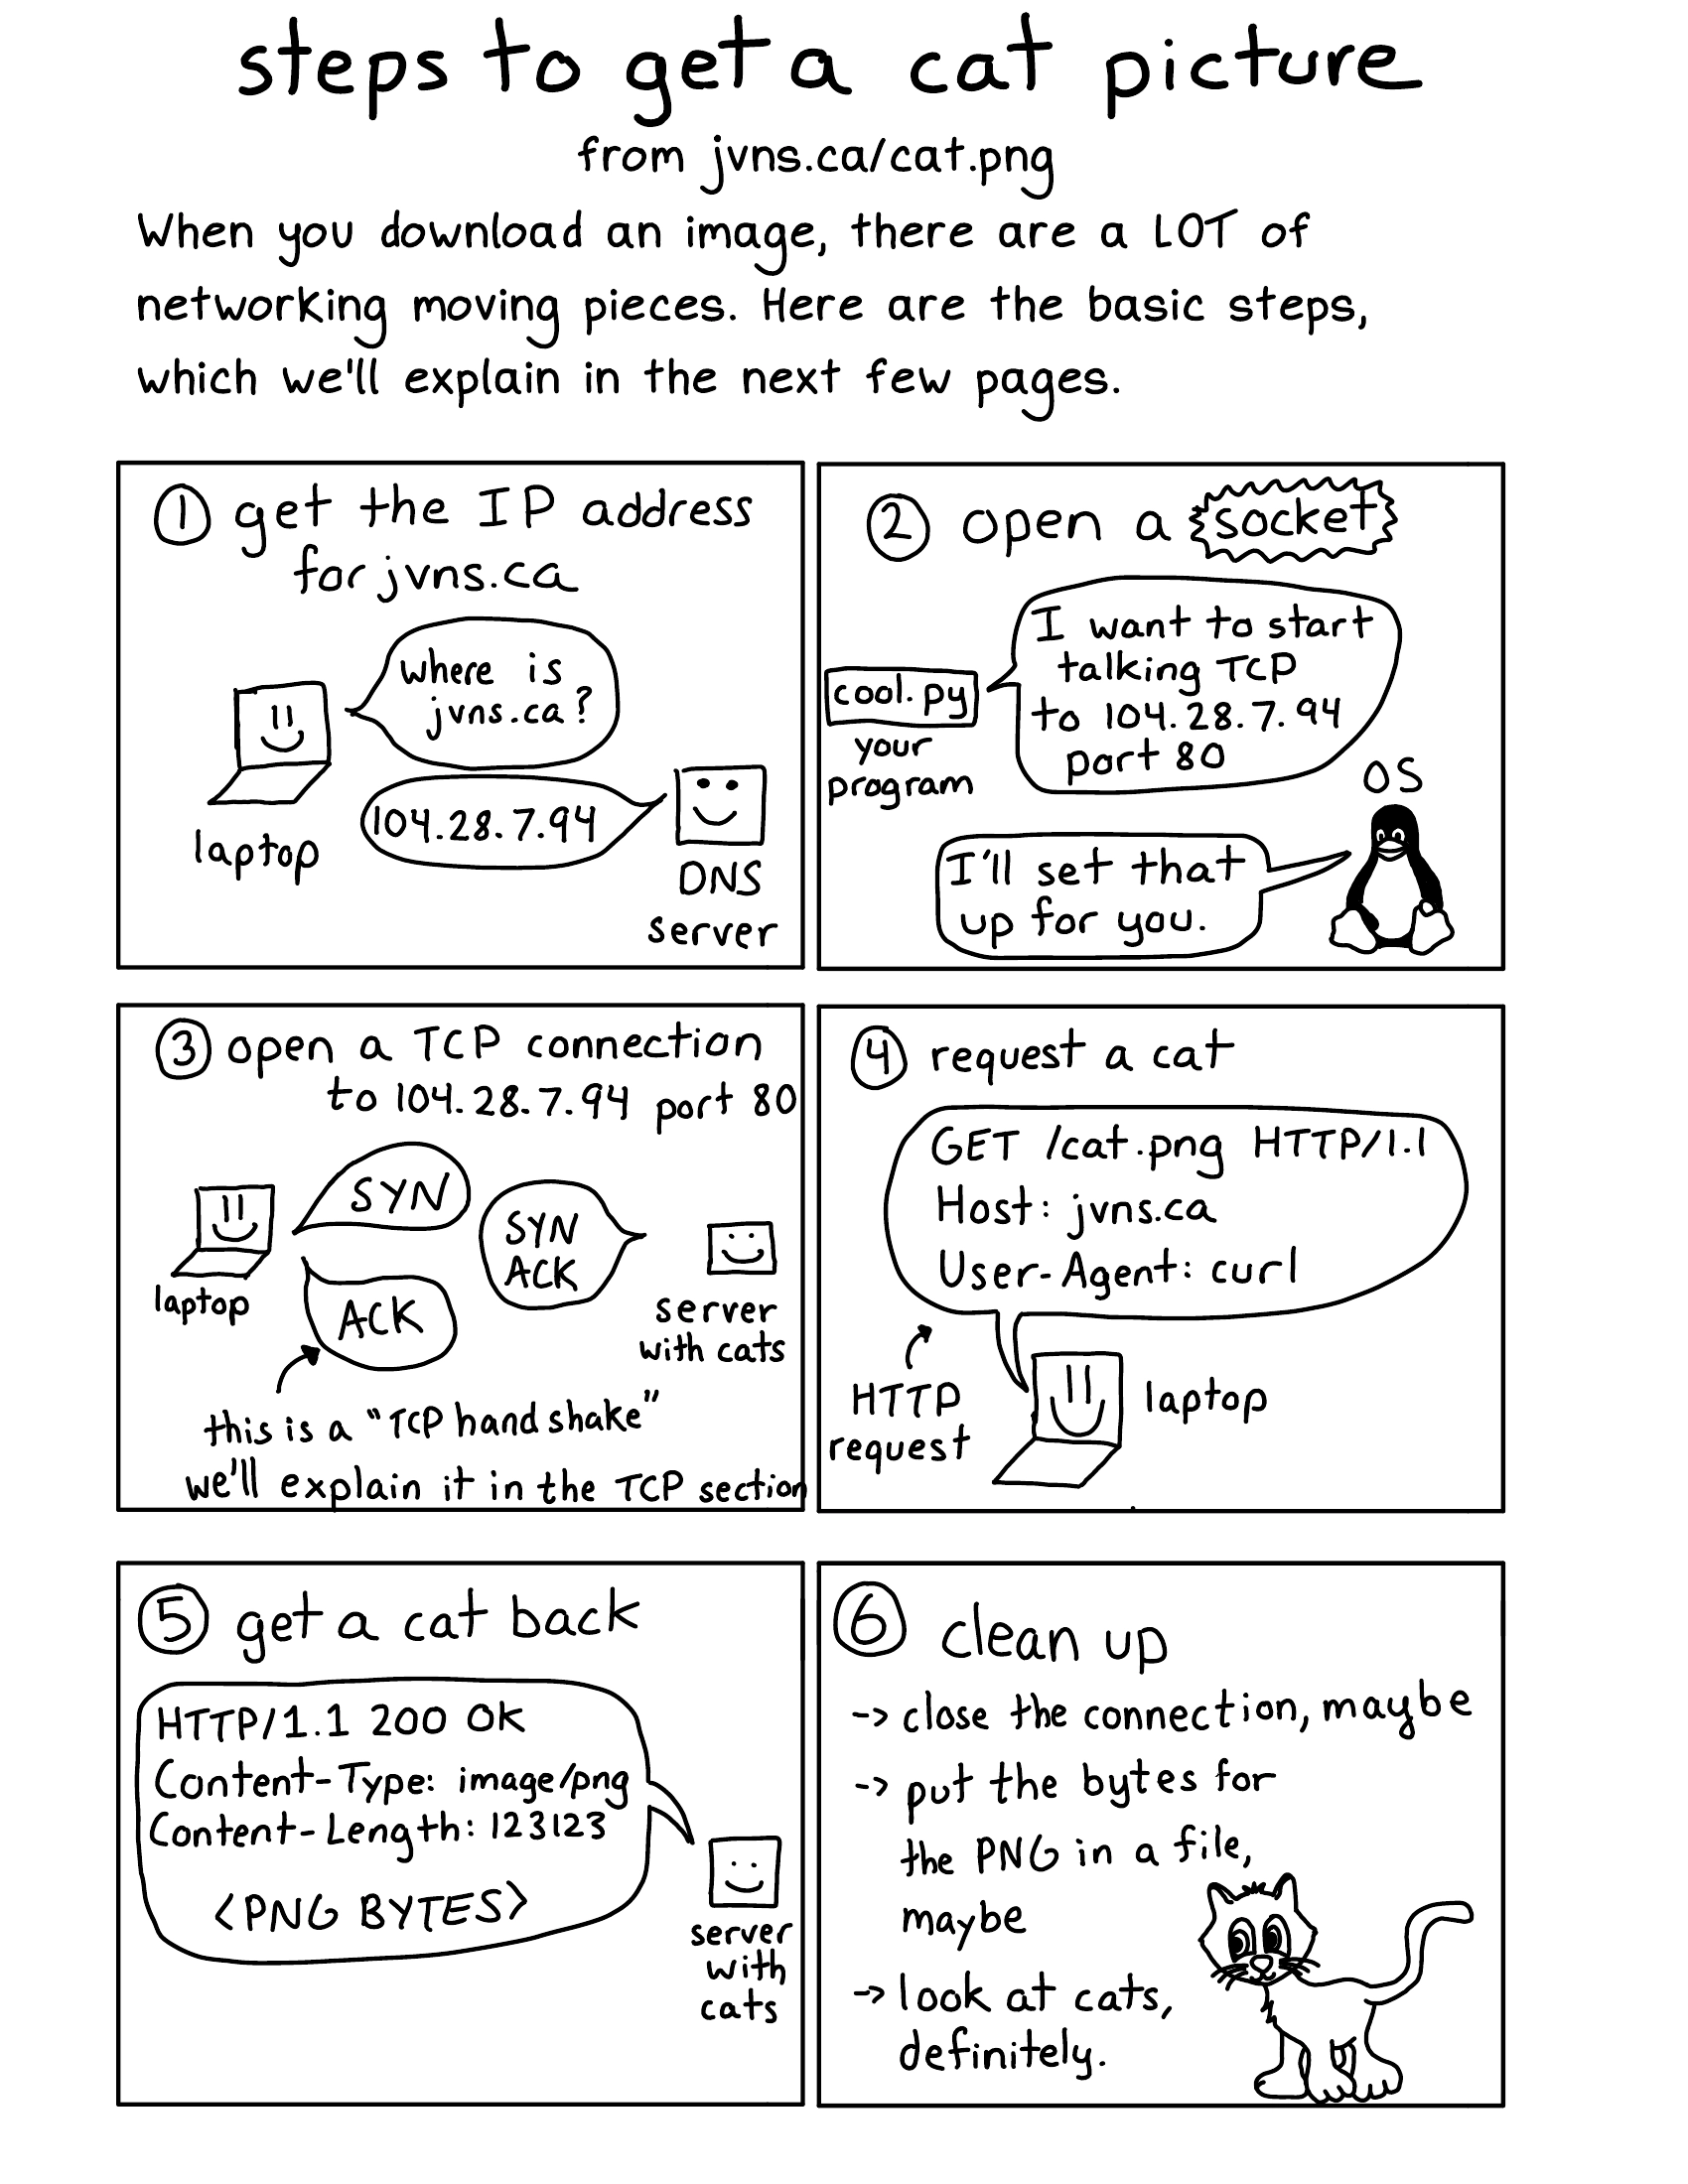 steps to get a cat picture
from jvns.ca/cat.png
When you download an image, there are a LOT of
networking moving pieces. Here are the basic steps,
which we'll explain in the next few pages.
① get the IP address
for jvns.ca
where is
jvns.ca?
laptop
104.28.7.94
DNS
server
② open a socket
I want to start
talking TCP
to 104.28.7.94
port 80
cool.py
your
program
OS
I'll set that
up for you.
③ open a TCP connection
to 104.28.7.94 port 80
SYN
SYN
ACK
ACK
laptop
server
with cats
this is a "TCP handshake"
we'll explain it in the TCP section
④ request a cat
GET /cat.png HTTP/1.1
Host: jvns.ca
User-Agent: curl
HTTP
request
laptop
⑤ get a cat back
HTTP/1.1 200 OK
Content-Type: image/png
Content-Length: 123123
<PNG BYTES>
server
with
cats
⑥ clean up
-> close the connection, maybe
-> put the bytes for
the PNG in a file,
maybe
-> look at cats,
definitely.